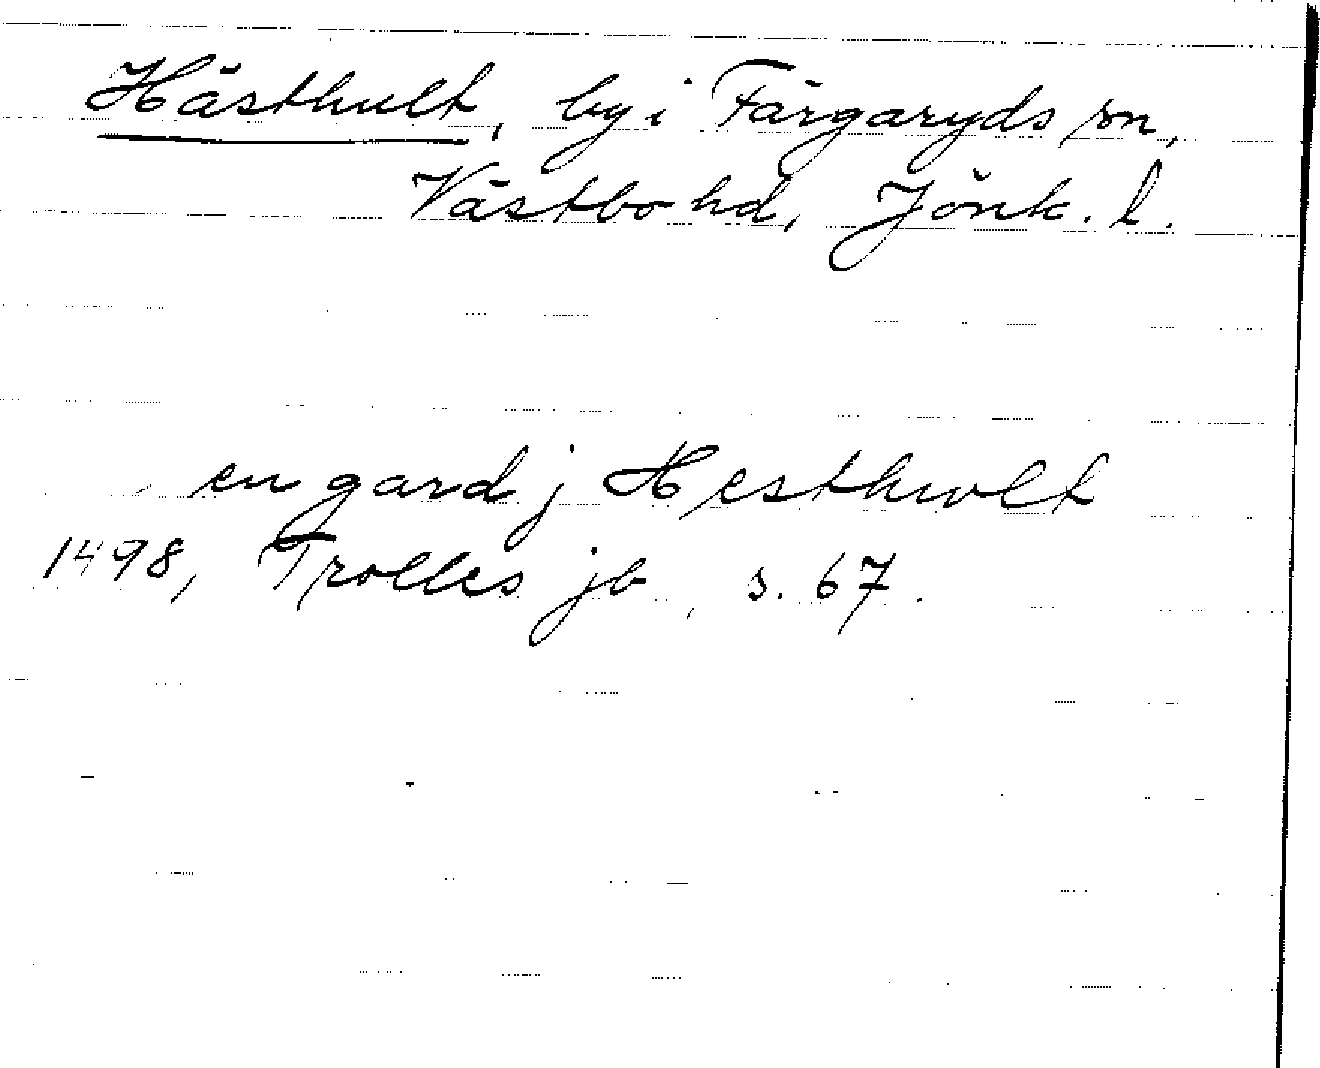 Hästhult, by i Färgaryds sn,
Västbo hd, Jönk. l.
en gard j Hesthwlt
1498, Trolles jb, s. 67.